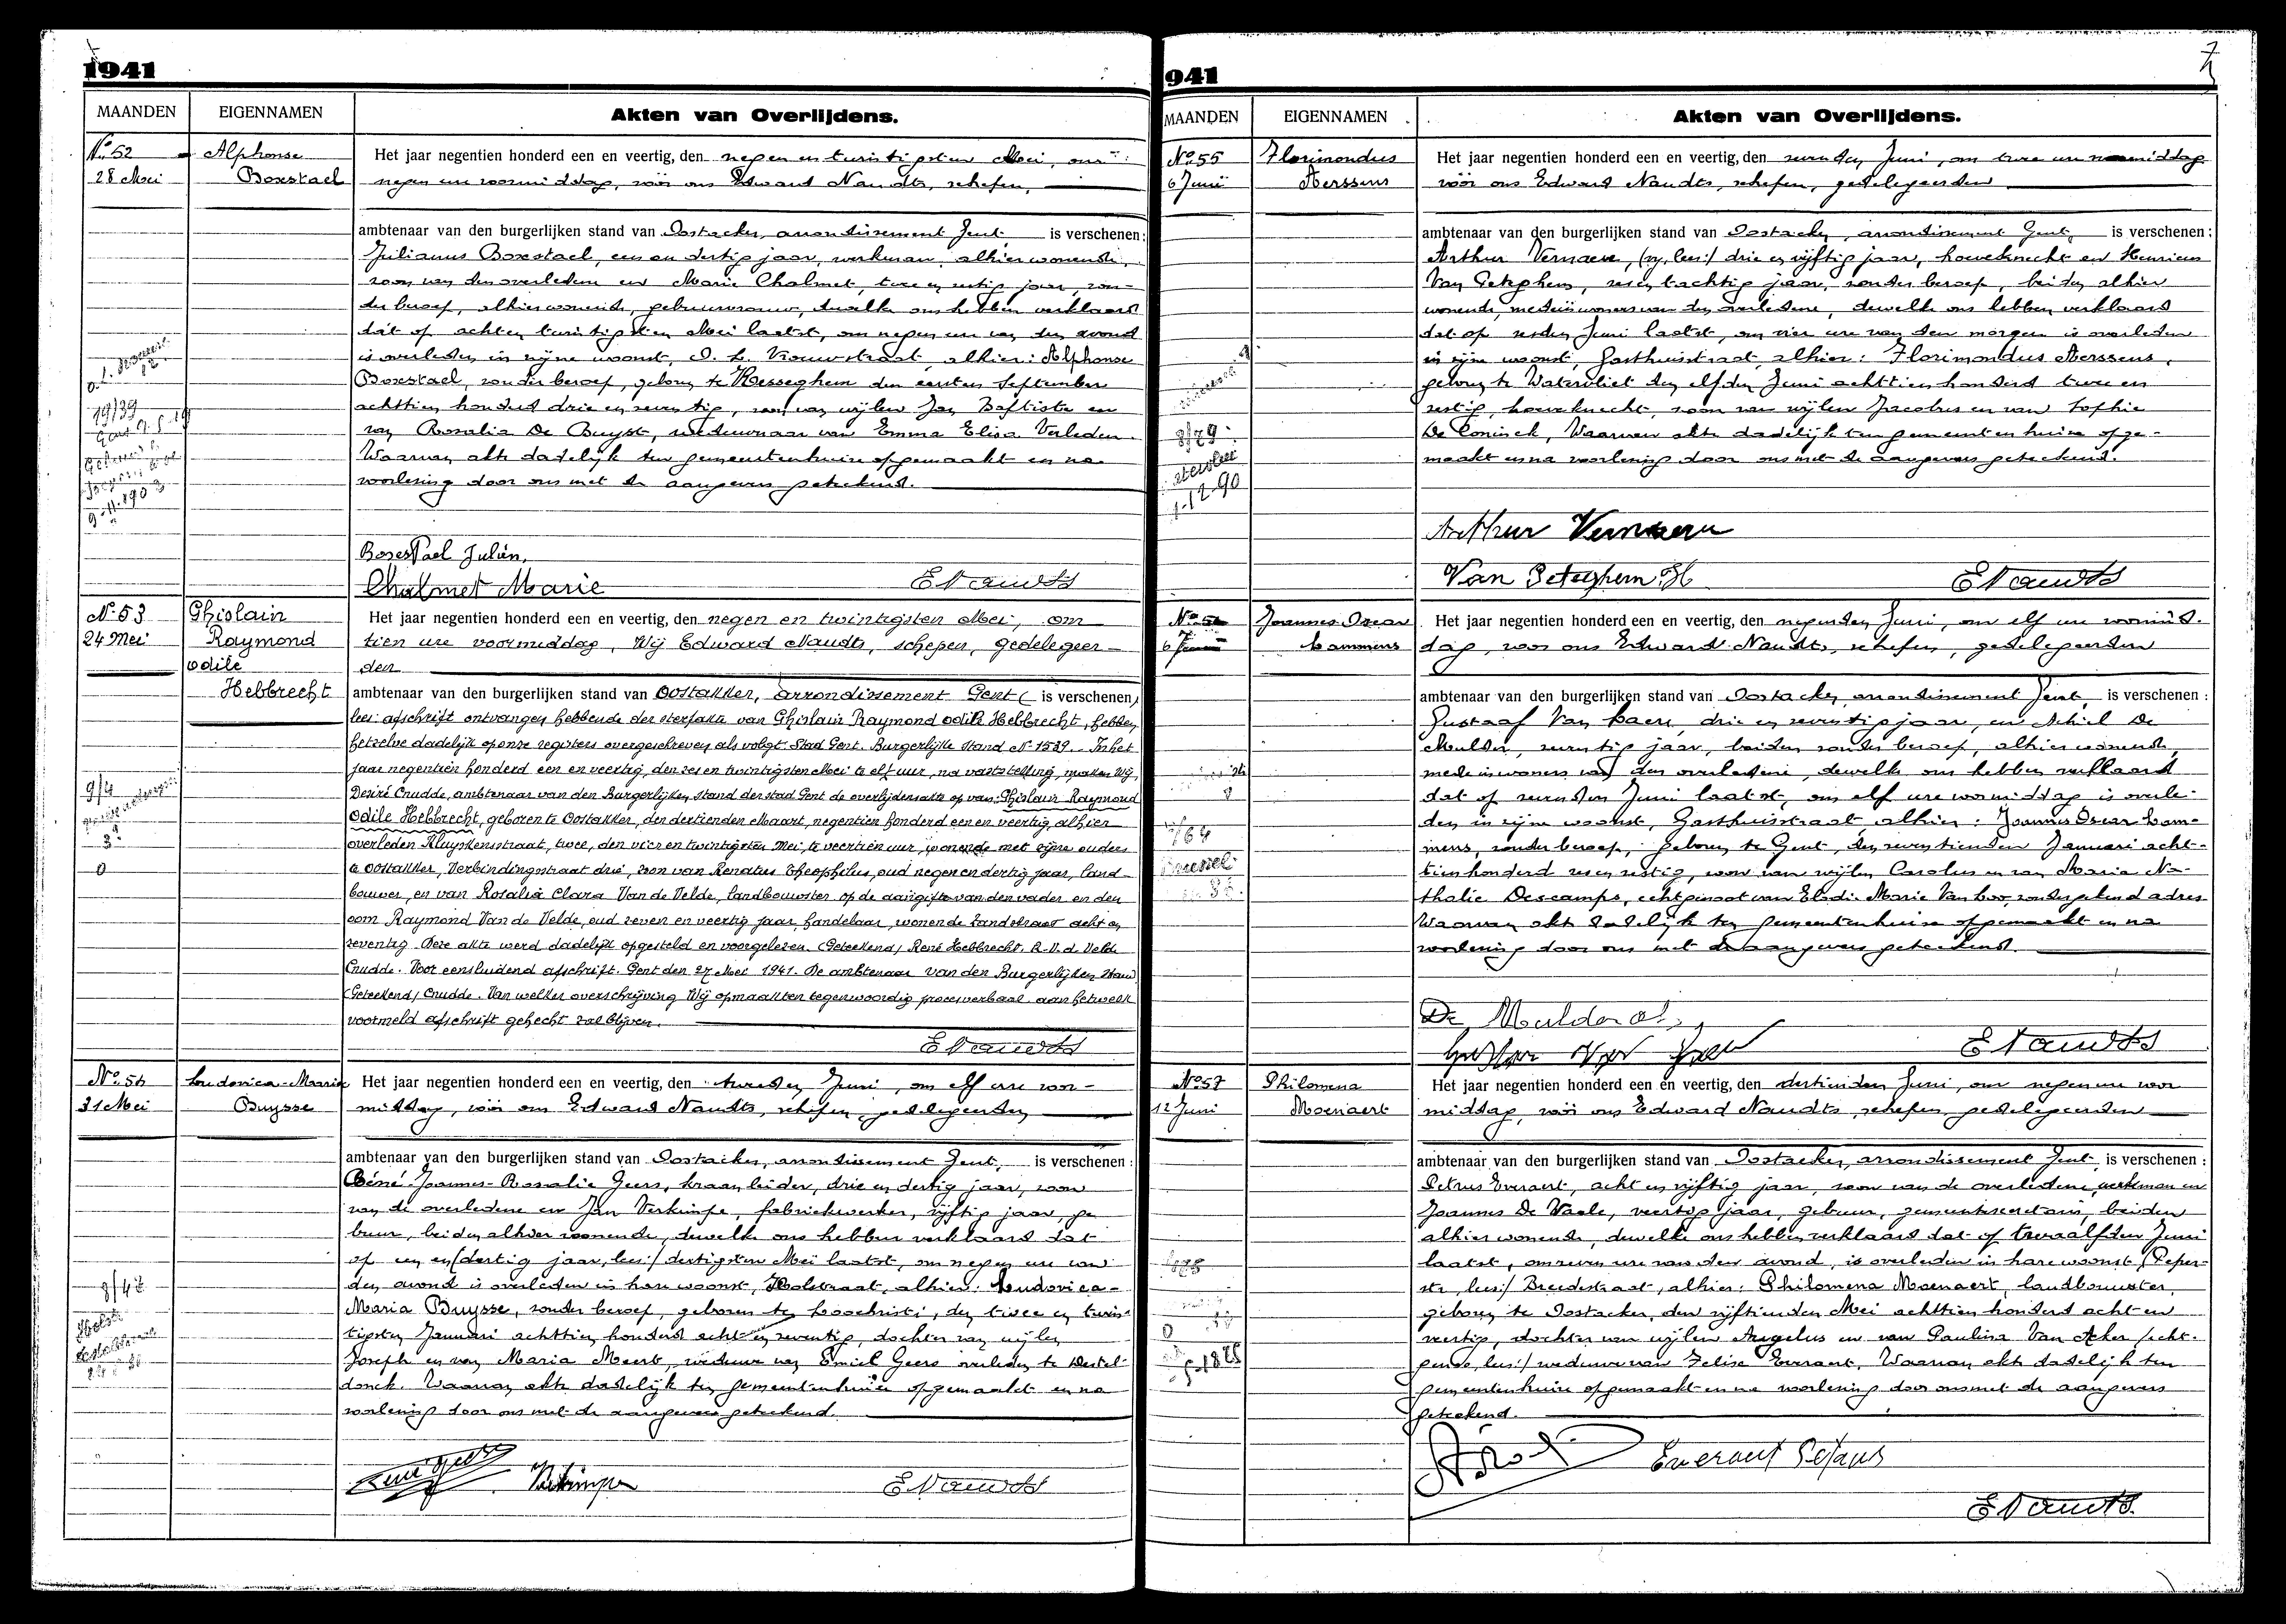 1941
MAANDEN EIGENNAMEN Akten van Overlijdens.
No 52 Alphonse
28 Mei Boxstael
Het jaar negentien honderd een en veertig, den negen en twintigsten Mei, om
negen ure voormiddag, vóór ons Edward Naudts, schepen,
ambtenaar van den burgerlijken stand van Oostacker, arrondissement Gent, is verschenen:
Julianus Boxstael, een en dertig jaar, werkman, alhier wonende,
zoon van den overleden en Marie Chalmet, twee en jaar, zon-
der beroep, alhier wonende, gebuurvrouw, dewelke ons hebben verklaard
dat op achten twintigsten Mei laatst, om negen ure van den avond
is overleden in zijne woonst, O. L. Vrouwstraat, alhier: Alphonse
Boxstael, zonder beroep, geboren te Resseghem den eersten September
achttien honderd drie en zeventig, zoon van wijlen Jan Baptiste en
van Rosalia De Buyst, weduwnaar van Emma Elisa Verleden.
Waarvan akte dadelijk ten gemeentenhuize opgemaakt en na
voorlezing door ons met de aangevers geteekend.
Boxstael Julien
Chalmet Marie ENaudts
No 53 Ghislain
24 Mei Raymond
Odile
Hebbrecht
Het jaar negentien honderd een en veertig, den negen en twintigsten Mei, om
tien ure voormiddag, Wij Edward Naudts, schepen, gedelegeer-
den
ambtenaar van den burgerlijken stand van Oostakker, arrondissement Gent ( is verschenen,
lees: afschrift ontvangen hebbende der sterfakte van Ghislain Raymond Odile Hebbrecht, hebben
hetzelve dadelijk op onze registers overgeschreven als volgt: Stad Gent. Burgerlijke Stand No 1589. In het
jaar negentien honderd een en veertig, den zes en twintigsten Mei te elf uur, na vaststelling, maken Wij,
Desiré Crudde, ambtenaar van den Burgerlijken Stand der stad Gent de overlijdensakte op van: Ghislain Raymond
Odile Hebbrecht, geboren te Oostakker, den dertienden Maart, negentien honderd een en veertig, alhier
overleden Kluyskensstraat, twee, den vier en twintigsten Mei, te veertien uur, wonende met zijne ouders
te Oostakker, Verbindingsstraat drie, zoon van Renatus Theophilus, oud negen en dertig jaar, land-
bouwer, en van Rosalia Clara Van de Velde, landbouwster, op de aangifte van den vader en den
oom Raymond Van de Velde, oud zeven en veertig jaar, handelaar, wonende Landstraat acht en
zeventig. Deze akte werd dadelijk opgesteld en voorgelezen. (Geteekend) René Hebbrecht. R. V. d. Velde
Crudde. Voor eensluidend afschrift. Gent den 27 Mei 1941. De ambtenaar van den Burgerlijken Stand
(Geteekend) Crudde. Van welker overschrijving Wij opmaakten tegenwoordig procesverbaal aan hetwelk
voormeld afschrift gehecht zal blijven.
ENaudts
No 54 Ludovica-Maria
31 Mei Buysse
Het jaar negentien honderd een en veertig, den tweeden Juni, om elf ure voor-
middag, vóór ons Edward Naudts, schepen, gedelegeerden
ambtenaar van den burgerlijken stand van Oostacker, arrondissement Gent, is verschenen:
Réné-Joannes-Rosalie Geers, kraanleider, drie en dertig jaar, zoon
van de overledene en Jan Verkimpe, fabriekwerker, vijftig jaar, ge-
buur, beiden alhier wonende, dewelke ons hebben verklaard dat
op een en (dertig jaar, lees:) dertigsten Mei laatst, om negen ure van
den avond is overleden in hare woonst, straat, alhier: Ludovica-
Maria Buysse, zonder beroep, geboren te Loochristi, den twee en twin-
tigsten Januari achttien honderd acht en zeventig, dochter van wijlen
Joseph en van Maria Meert, weduwe van Emiel Geers overleden te Destel-
donck. Waarvan akte dadelijk ten gemeentenhuize opgemaakt en na
voorlezing door ons met de aangevers geteekend.
Verkimpe ENaudts
941
MAANDEN EIGENNAMEN Akten van Overlijdens.
No 55 Florimondus
6 Juni Aerssens
Het jaar negentien honderd een en veertig, den zevenden Juni, om twee ure namiddag
vóór ons Edward Naudts, schepen, gedelegeerden
ambtenaar van den burgerlijken stand van Oostacker, arrondissement Gent, is verschenen:
Arthur Vernaeve, (vy, lees:) drie en vijftig jaar, hoveknecht en Henricus
Van Geteghem, zes en tachtig jaar, zonder beroep, beiden alhier
wonende, medeinwoners van den overledene, dewelke ons hebben verklaard
dat op zesden Juni laatst, om vier ure van den morgen is overleden
in zijne woonst, Gasthuisstraat, alhier: Florimondus Aerssens,
geboren te Watervliet den elfden Juni achttien honderd twee en
zestig, hoveknecht, zoon van wijlen Jacobus en van Sophie
De Coninck, Waarvan akte dadelijk ten gemeentenhuize opge-
maakt en na voorlezing door ons met de aangevers geteekend.
Arthur Vernaeve
Van Geteghem H ENaudts
No 56 Joannes-Oscar
Lammens
Het jaar negentien honderd een en veertig, den negenden Juni, om elf ure voormid-
dag, voor ons Edward Naudts, schepen, gedelegeerden
ambtenaar van den burgerlijken stand van Oostacker, arrondissement Gent, is verschenen:
Gustaaf Van Haere, drie en zeventig jaar, en Achiel De
Mulder, zeventig jaar, beiden zonder beroep, alhier wonende,
mede inwoners van den overledene, dewelke ons hebben verklaard
dat op zevensten Juni laatst, om elf ure voormiddag is overle-
den in zijne woonst, Gasthuisstraat alhier: Joannes Oscar Lam-
mens, zonder beroep, geboren te Gent, den zeventienden Januari acht-
tienhonderd zes en zestig, zoon van wijlen Carolus en van Maria Na-
thalie Descamps, echtgenoot van Elodie Marie Van Loo, zonder gekend adres
Waarvan akte dadelijk ten gemeentenhuize opgemaakt en na
voorlezing door ons met de aangevers geteekend.
De Mulder
ENaudts
No 57 Philomena
12 Juni Moenaert
Het jaar negentien honderd een en veertig, den dertienden Juni, om negen ure voor
middag, vóór ons Edward Naudts, schepen, gedelegeerden
ambtenaar van den burgerlijken stand van Oostacker, arrondissement Gent, is verschenen:
Petrus Everaert, acht en vijftig jaar, zoon van de overledene, werkman en
Joannes De Waele, veertig jaar, gebuur, gemeentesecretaris, beiden
alhier wonende, dewelke ons hebben verklaard dat op twaalfden Juni
laatst, om zeven ure van den avond, is overleden in hare woonst (Peper-
str, lees:) Breedestraat, alhier: Philomena Moenaert, landbouwster,
geboren te Oostacker, den vijftienden Mei achttien honderd acht en
veertig, dochter van wijlen Angelus en van Paulina Van Acker (echt-
genoote, lees:) weduwe van Felix Everaert, Waarvan akte dadelijk ten
gemeentenhuize opgemaakt en na voorlezing door ons met de aangevers
geteekend.
Everaert Petrus
ENaudts